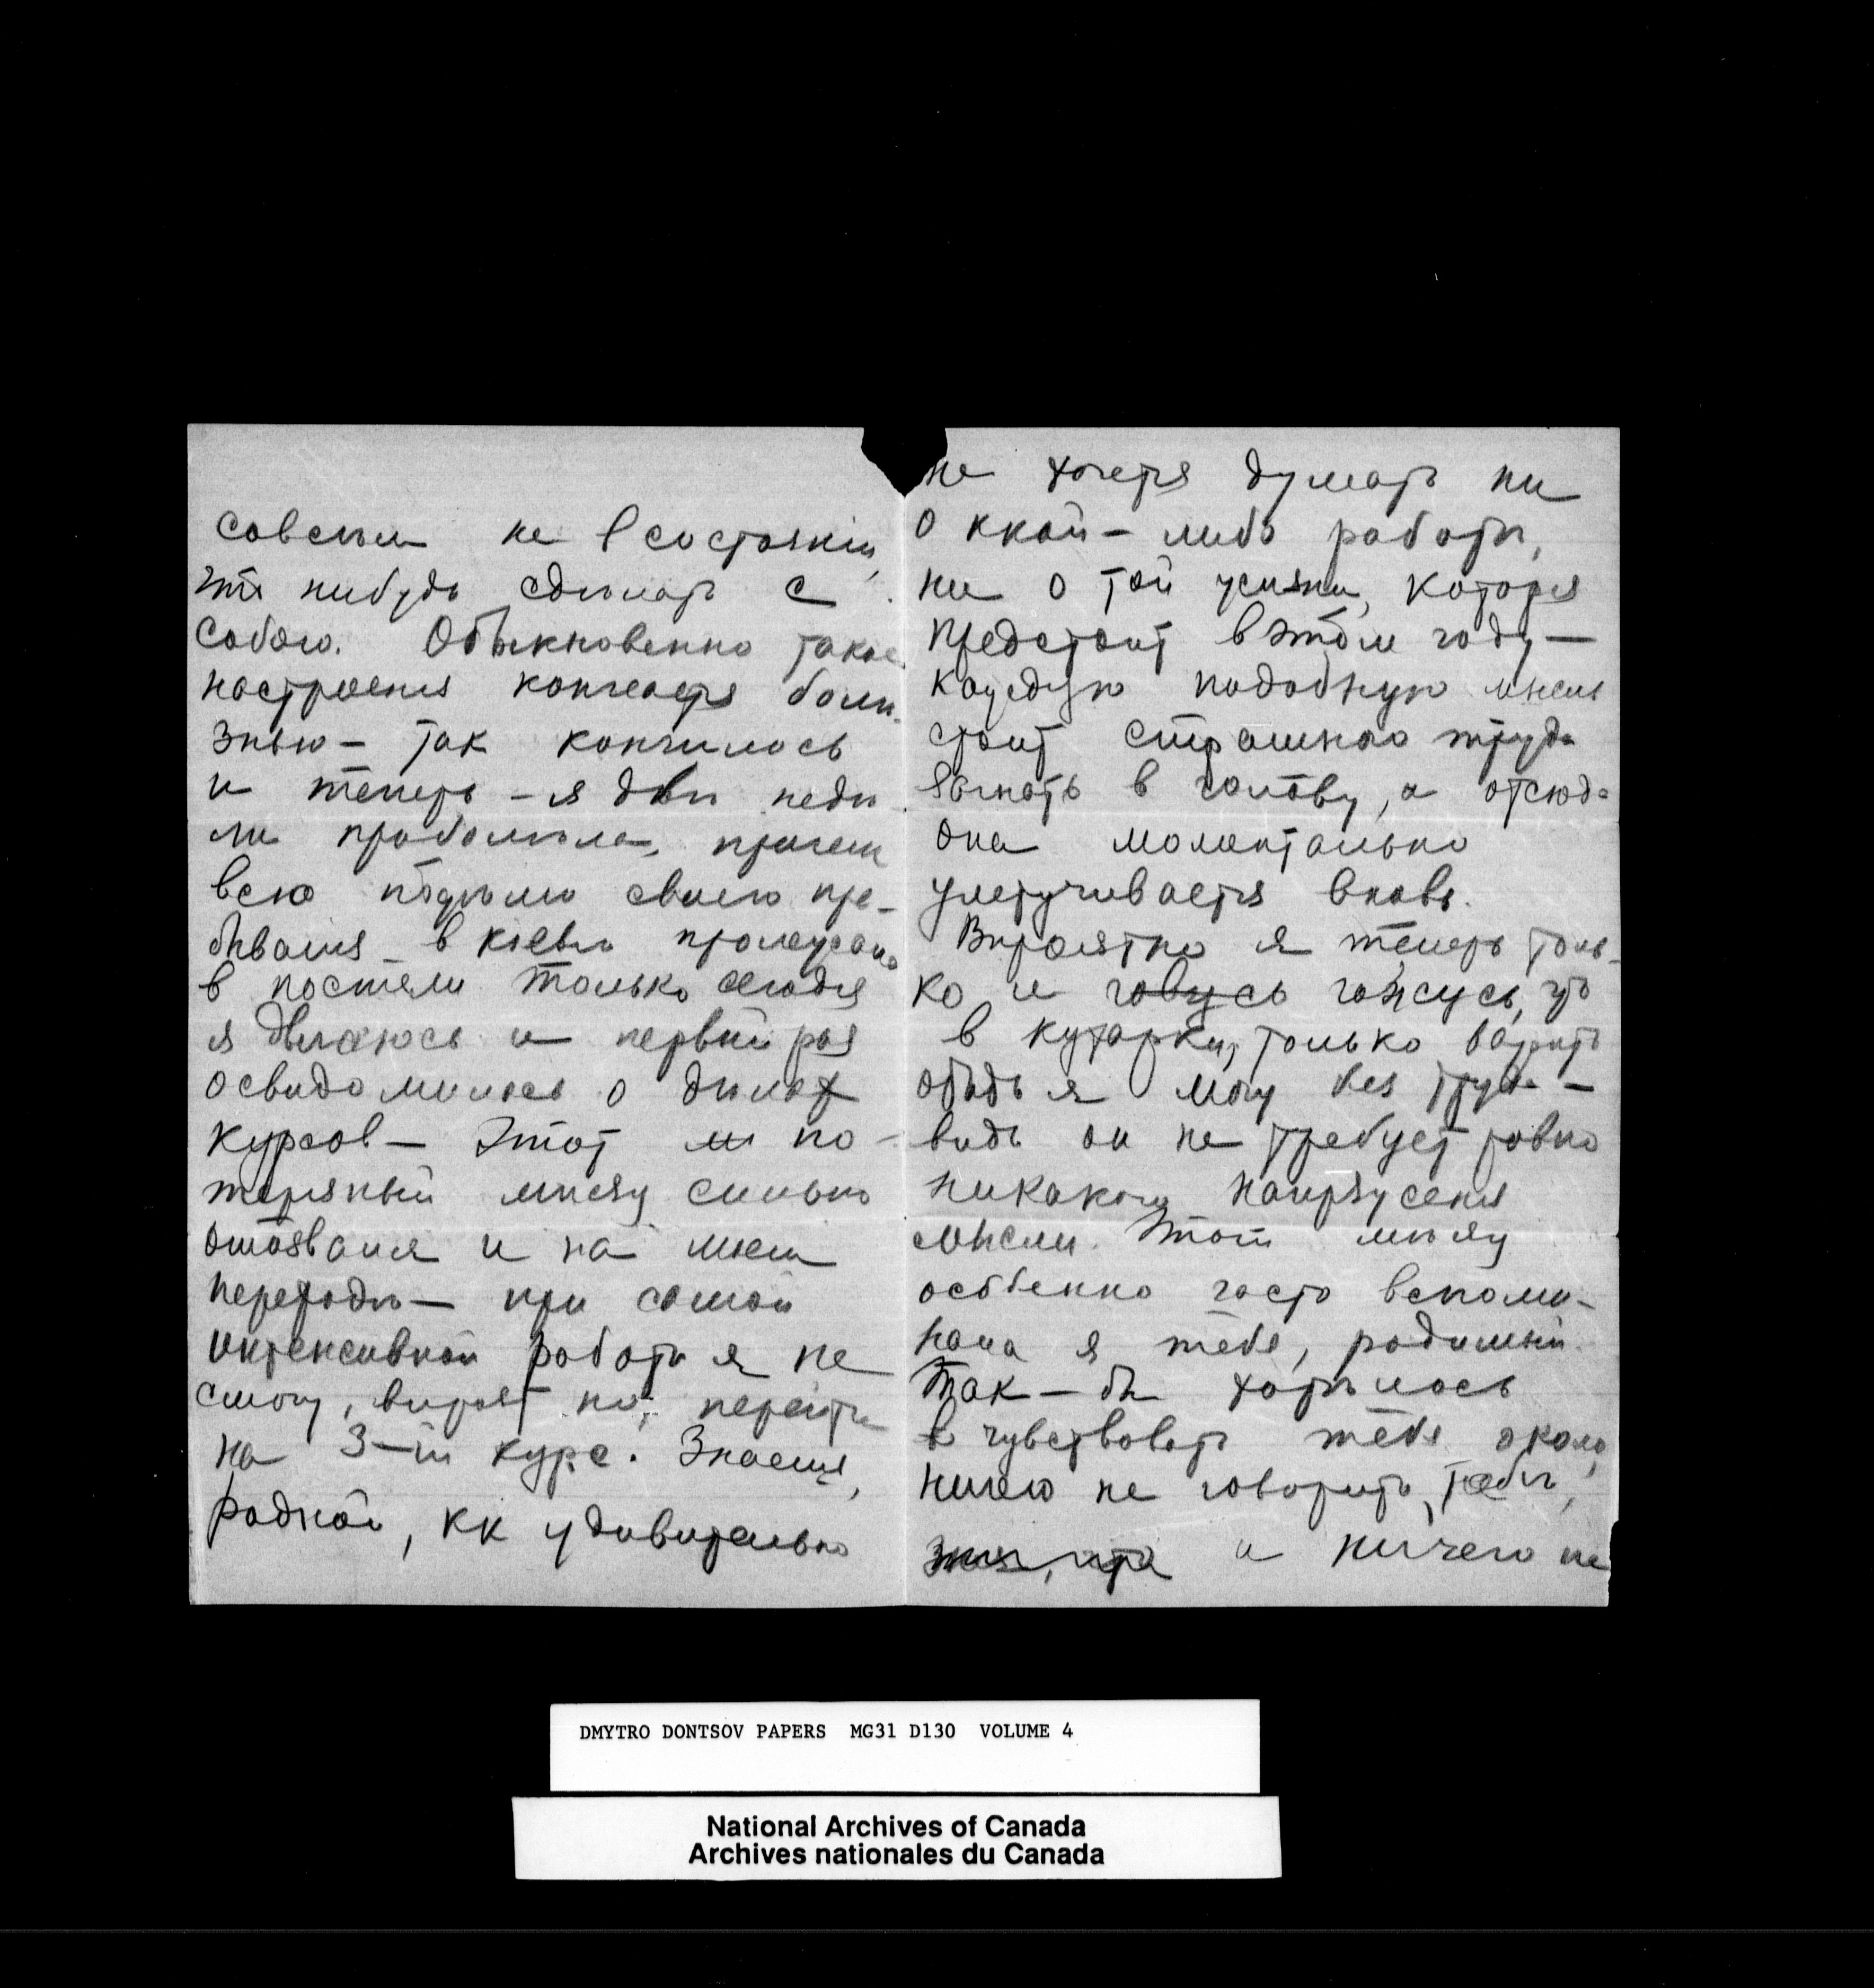 совсѣм не в состояніи,
что нибудь сдѣлать с
собою. Обыкновенно такое
настроенія кончается болѣ-
знью — так кончилось
и теперь — я двѣ недѣ
ли проболѣла, причем
всю недѣлю своего пре-
быванія в Кіевѣ пролежала
в постели только сегодня
я двигаюсь и первый раз
освидомилась о дѣлах
курсов — Этот по-
терянный мѣсяц сильно
отозвался и на моем
переходѣ — при самой
интенсивной работѣ я не
смогу, вѣроят но, перейти
на 3-ій курс. Знаешь,
родной, кк удивительно
не хочется думать ни
о ккой-либо работѣ,
ни о той жизни, которая
предстоит в этом году —
каждую подобную мысль
стоит страшнаго труда
загнать в голову, а отсюда
она моментально
улетучивается вновь.
Вѣроятно я теперь толь-
ко и говусь гожусь, что
в кухарки, только варить
обѣдъ я могу без труда —
видь он не требует ровно
никакого напряженія
мысли. Этот мѣсяц
особенно часто вспоми-
нала я тебя, родимый.
Так-бы хотѣлось
чувствовать тебя около,
ничего не говорить тебѣ,
и ничего не
DMYTRO DONTSOV PAPERS MG31 D130 VOLUME 4
National Archives of Canada
Archives nationales du Canada